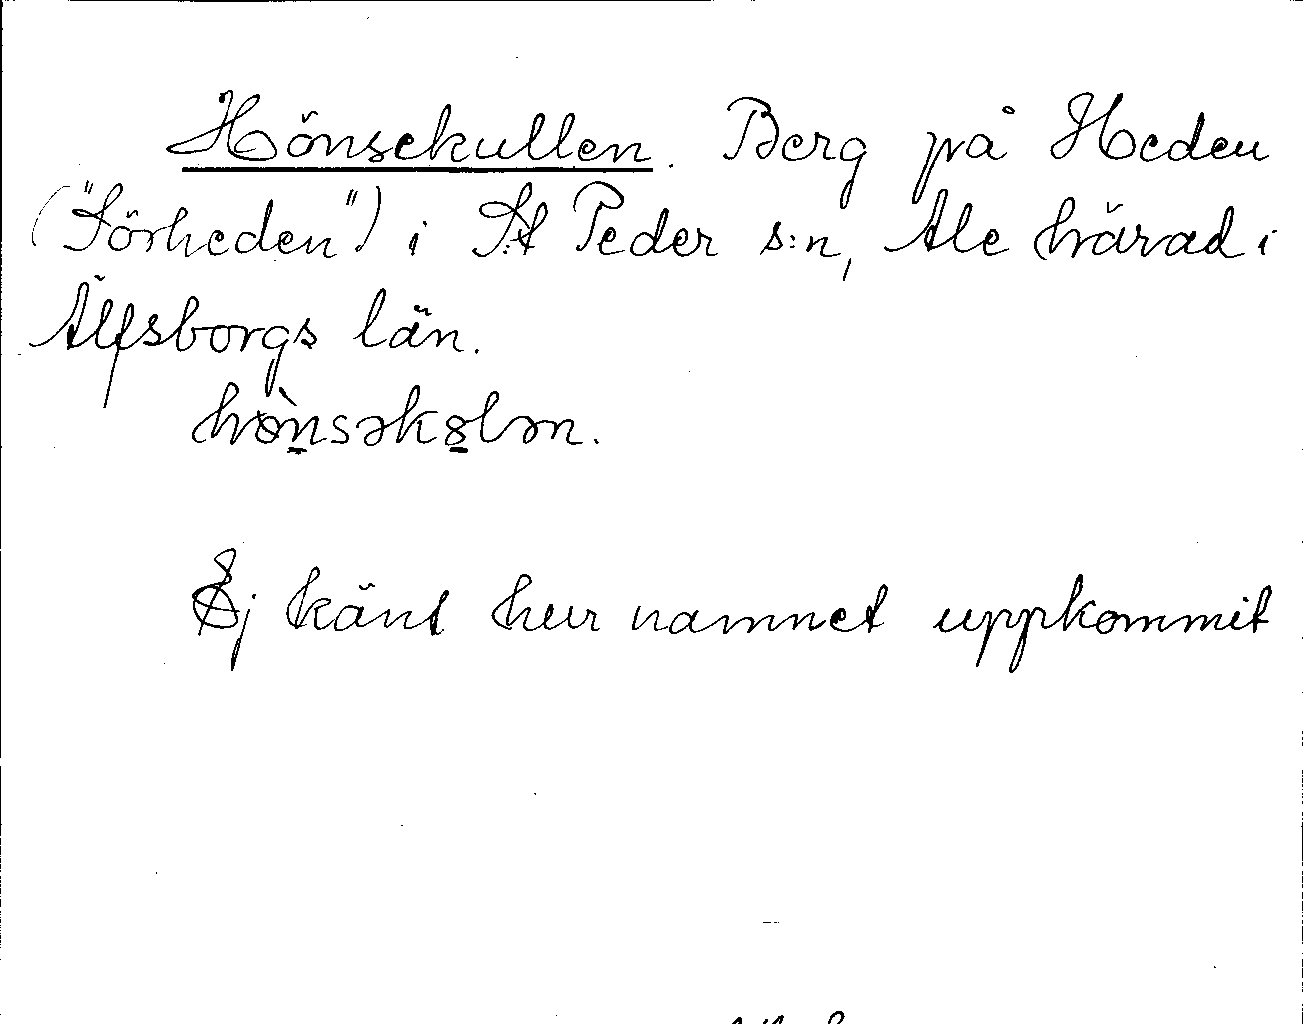 Hönsekullen. Berg på Heden
("Sörheden") i S:t Peder s:n, Ale härad i
Älfsborgs län.
hɵ̀nsəkɞlən.
Ej känt hur namnet uppkommit